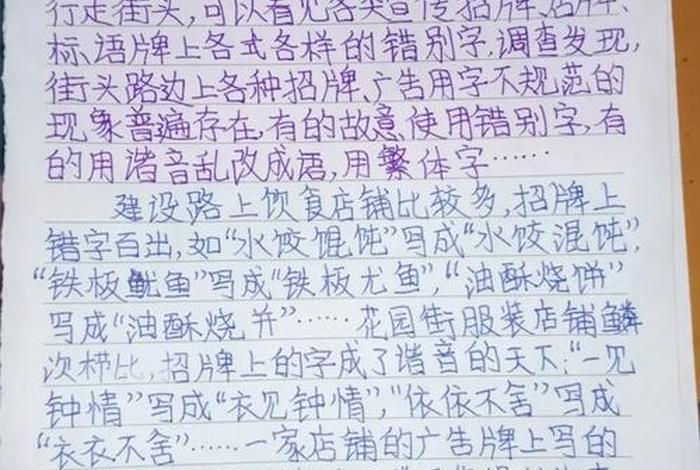 行走街头,可以看见各类宣传招牌、店牌、
标语牌上各式各样的错别字。调查发现,
街头路边上各种招牌、广告用字不规范的
现象普遍存在,有的故意使用错别字,有
的用谐音乱改成语,用繁体字……
建设路上饮食店铺比较多,招牌上
错字百出,如“水饺馄饨”写成“水饺混饨”,
“铁板鱿鱼”写成“铁板尤鱼”,“油酥烧饼”
写成“油酥烧并”……花园街服装店铺鳞
次栉比,招牌上的字成了谐音的天下:“一见
钟情”写成“衣见钟情”,“依依不舍”写成
“衣衣不舍”……一家店铺的广告牌上写的